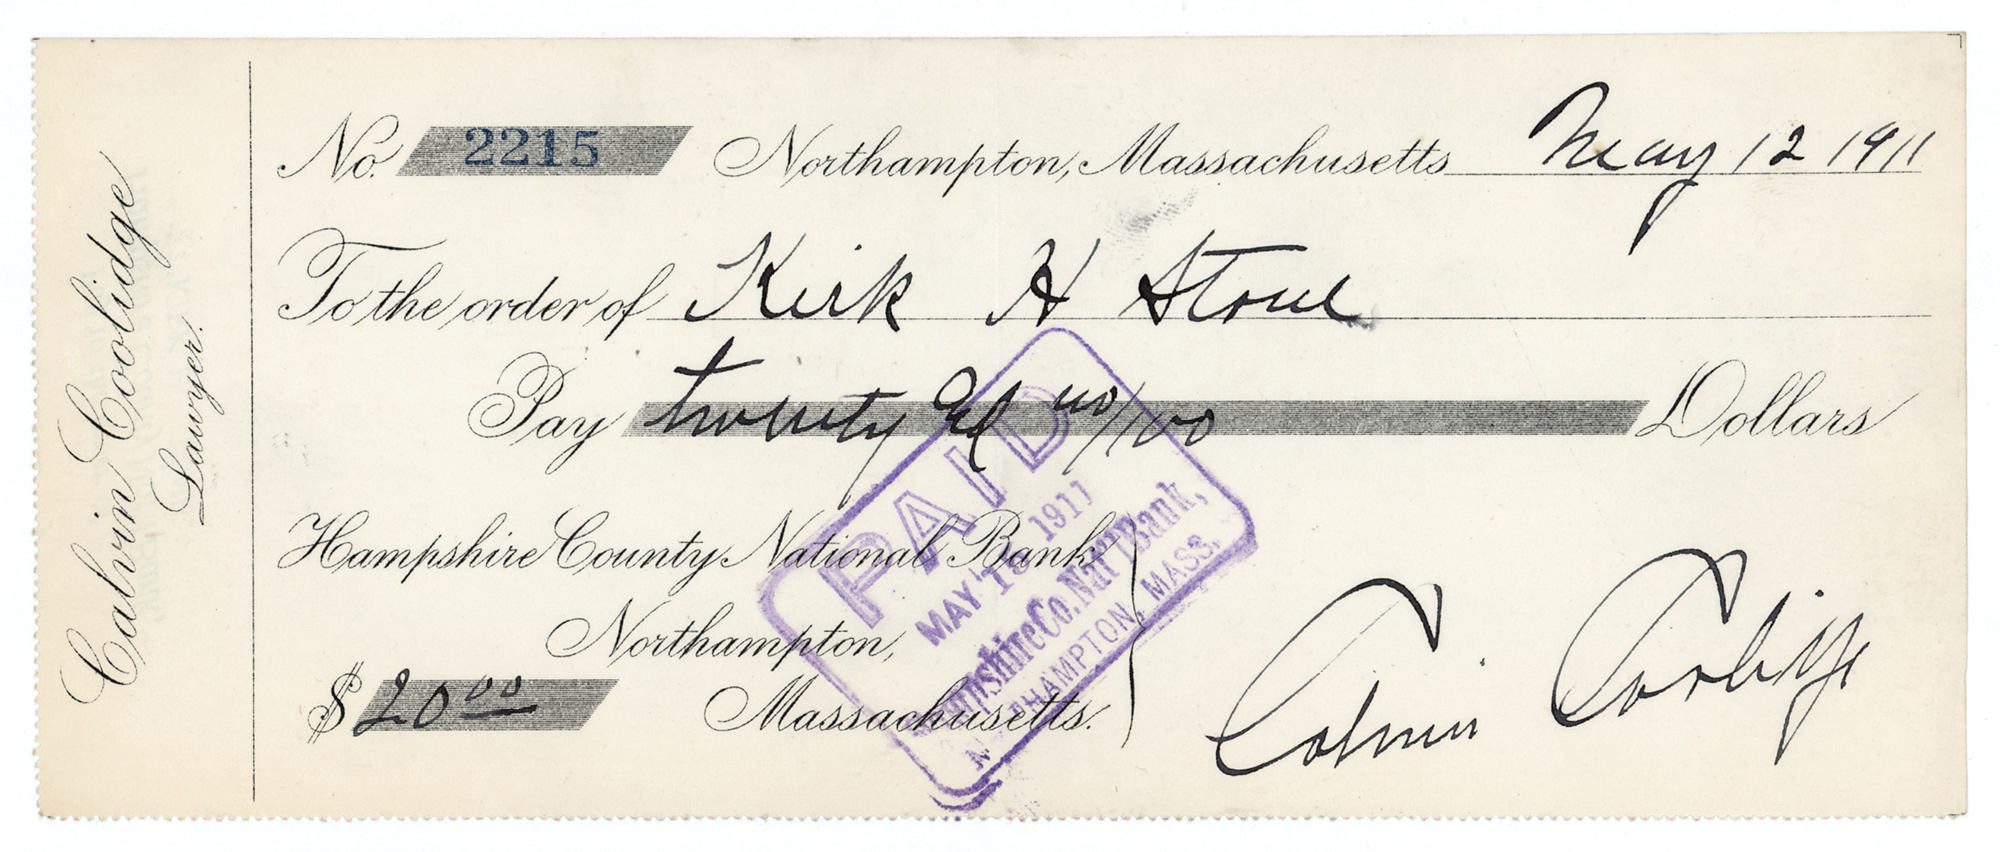 Calvin Coolidge
Lawyer.
No. 2215 Northampton, Massachusetts May 12 1911
To the order of Kirk H Stone
Pay twenty and no/100 Dollars
Hampshire County National Bank
Northampton,
$ 20 00 Massachusetts.
Calvin Coolidge
PAID
MAY 1911
Co. Nat'l Bank,
NORTHAMPTON, MASS.